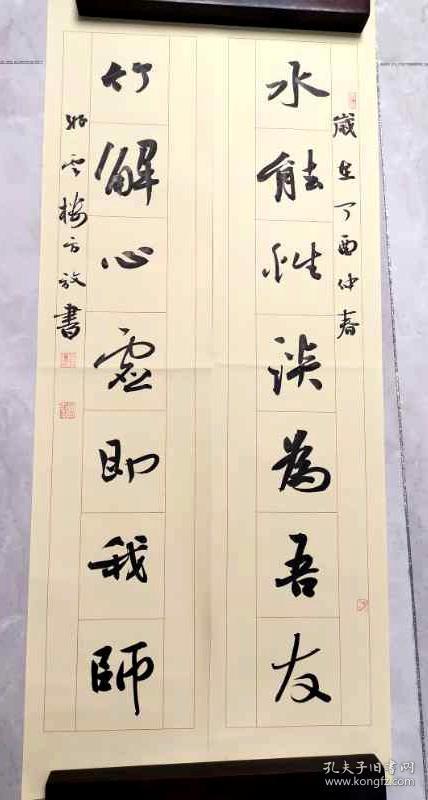 歲在丁酉仲春
水能性淡為吾友
竹解心虛即我師
雲樓方放書
孔夫子旧书网
www.kongfz.com